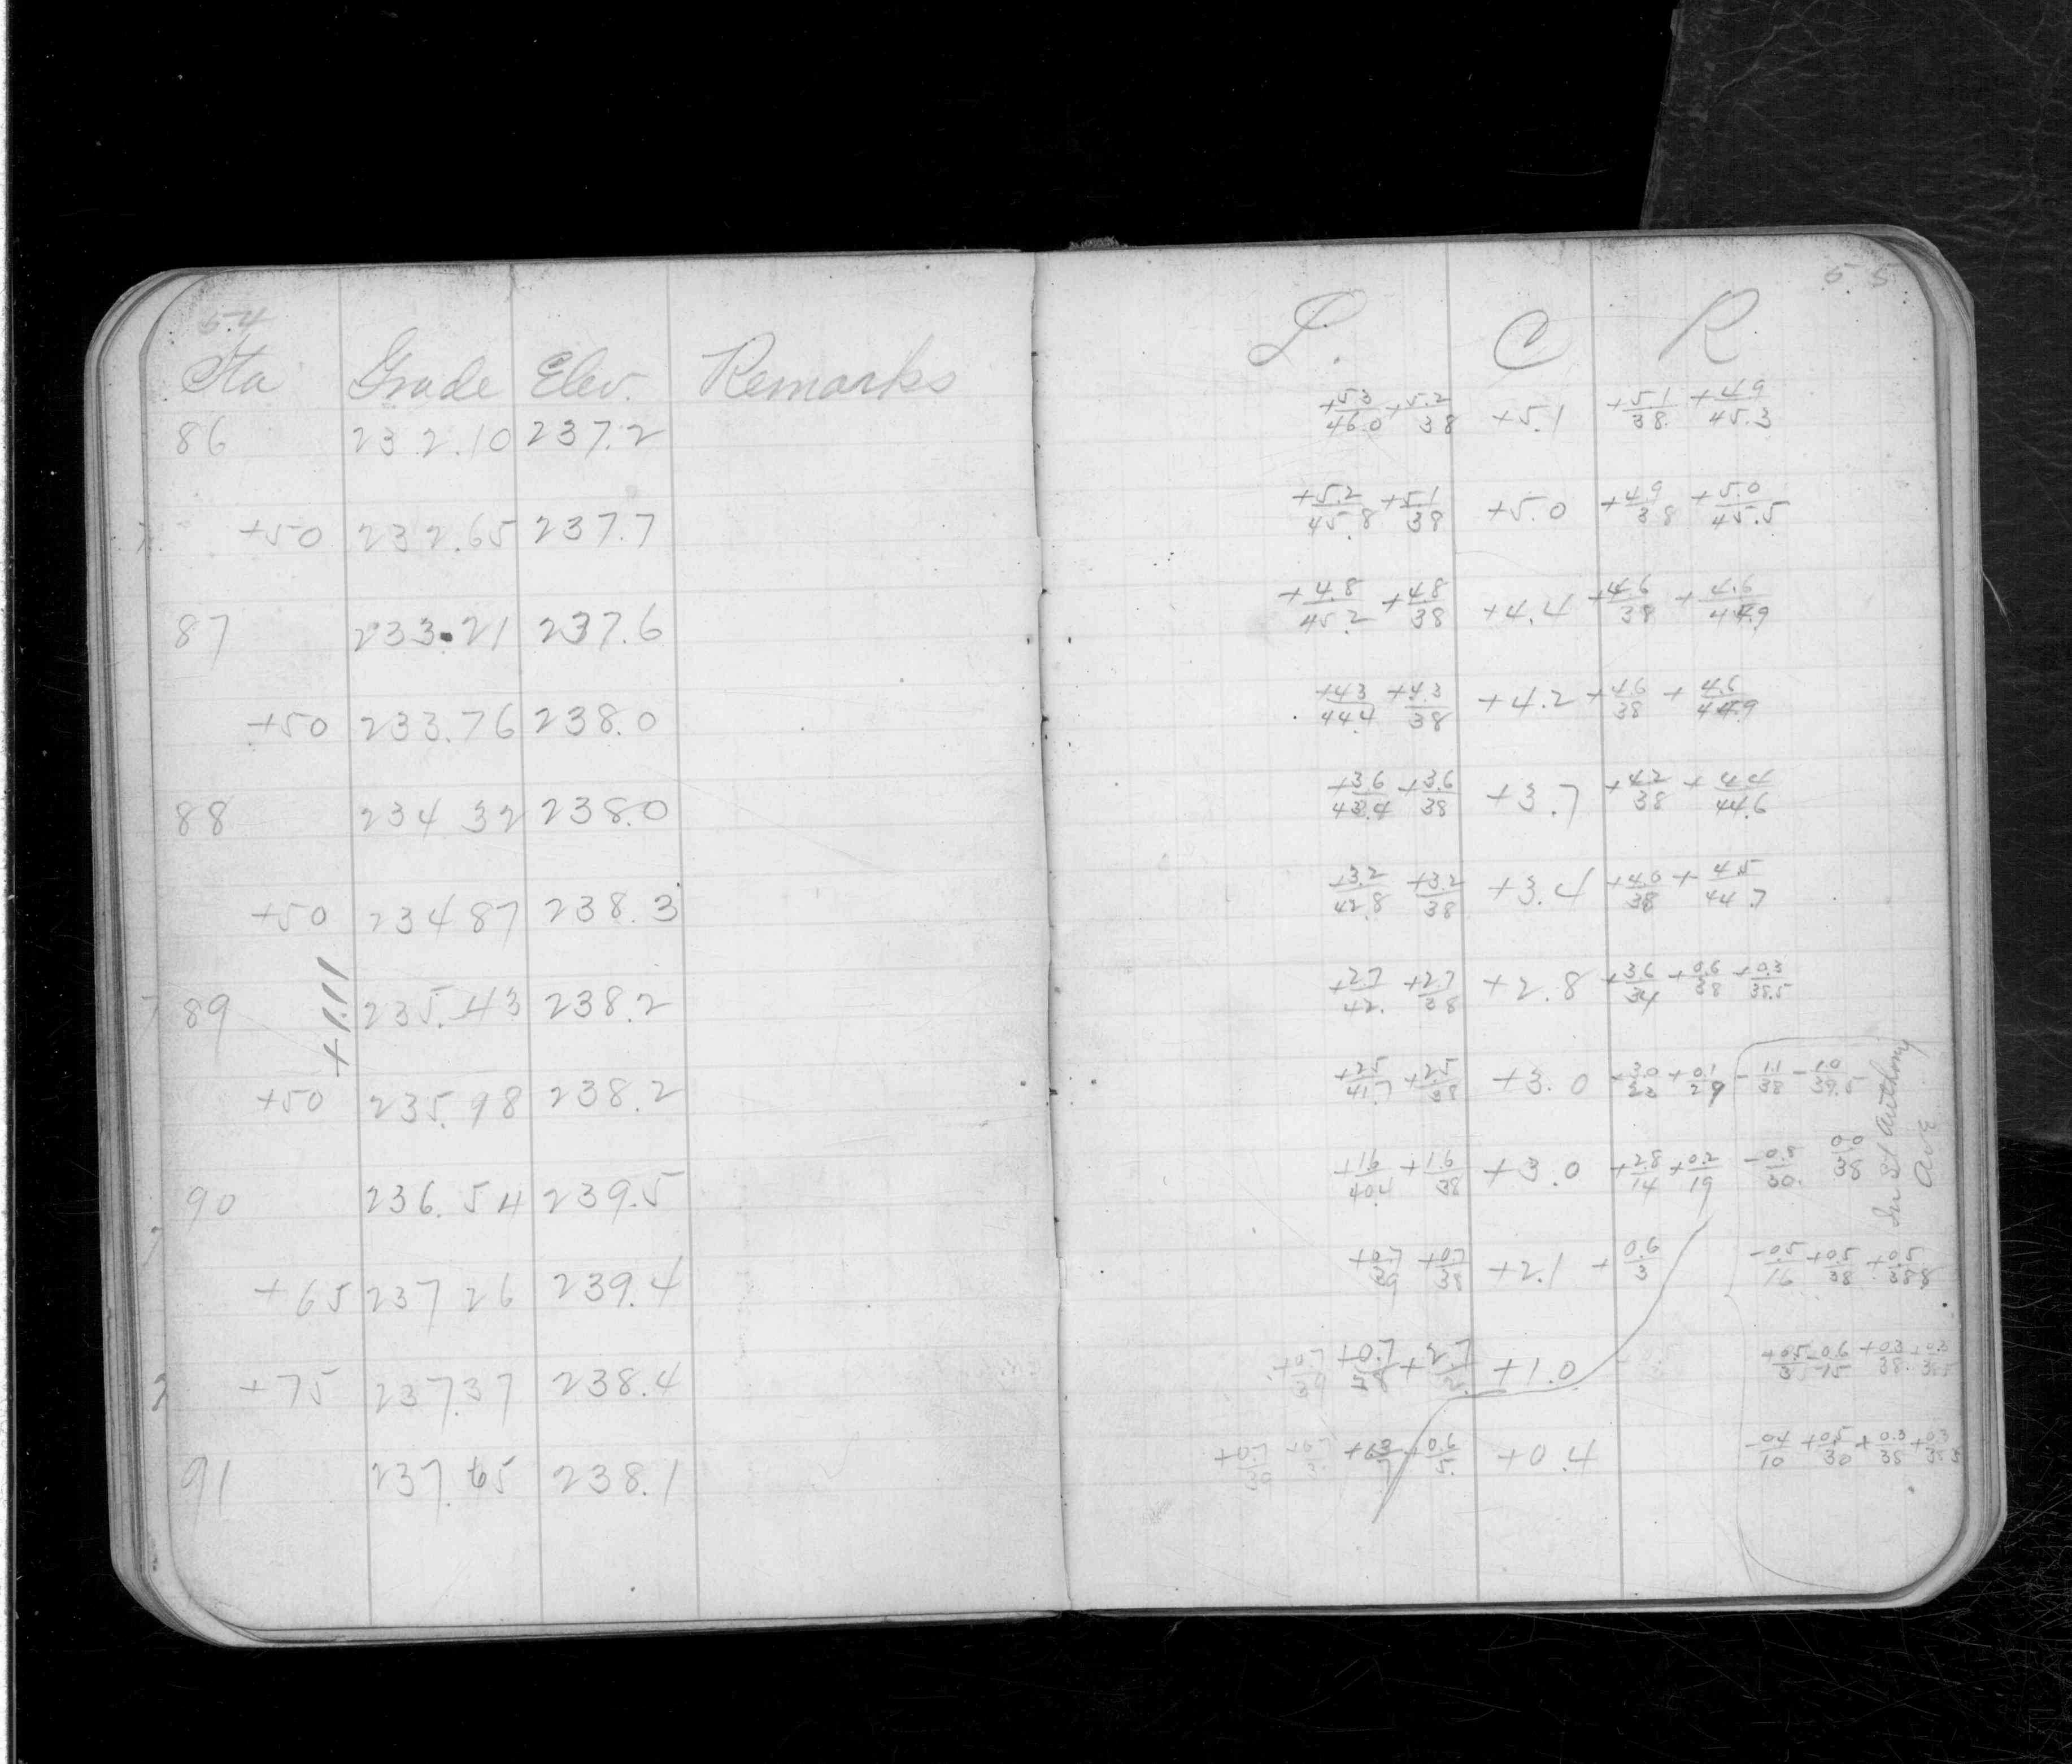 54
Sta Grade Elev. Remarks
86 232.10 237.2
+50 232.65 237.7
87 233.21 237.6
+50 233.76 238.0
88 234 32 238.0
+50 234 87 238.3
+1.11
89 235.43 238.2
+50 235.98 238.2
90 236.54 239.5
+65 237 26 239.4
+75 237.37 238.4
91 237.65 238.1
55
L. C R
+5.3/46.0 +5.2/38 +5.1 +5.1/38. +4.9/45.3
+5.2/45.8 +5.1/38 +5.0 +4.9/38 +5.0/45.5
+4.8/45.2 +4.8/38 +4.4 +4.6/38 +4.6/44.9
+4.3/44.4 +4.3/38 +4.2 +4.6/38 +4.6/44.9
+3.6/43.4 +3.6/38 +3.7 +4.2/38 +4.4/44.6
+3.2/42.8 +3.2/38 +3.4 +4.0/38 +4.5/44.7
+2.7/42. +2.7/38 +2.8 +3.6/34 +0.6/38 +0.3/38.5
+2.5/41.7 +2.5/38 +3.0 +3.0/23 +0.1/29 -1.1/38 -1.0/39.5
+1.6/40.4 +1.6/38 +3.0 +2.8/14 +0.2/19 -0.8/30. 0.0/38
In St Anthony
Ave
+0.7/39 +0.7/38 +2.1 +0.6/3 -0.5/16 +0.5/38 +0.5/38.8
+0.7/39 +0.7/38 +2.7/2. +1.0 +0.5/3 -0.6/15 +0.3/38. +0.3/38.5
+0.7/39 +0.7 +6.3/7 +0.6/5. +0.4 -0.4/10 +0.5/30 +0.3/38 +0.3/38.5